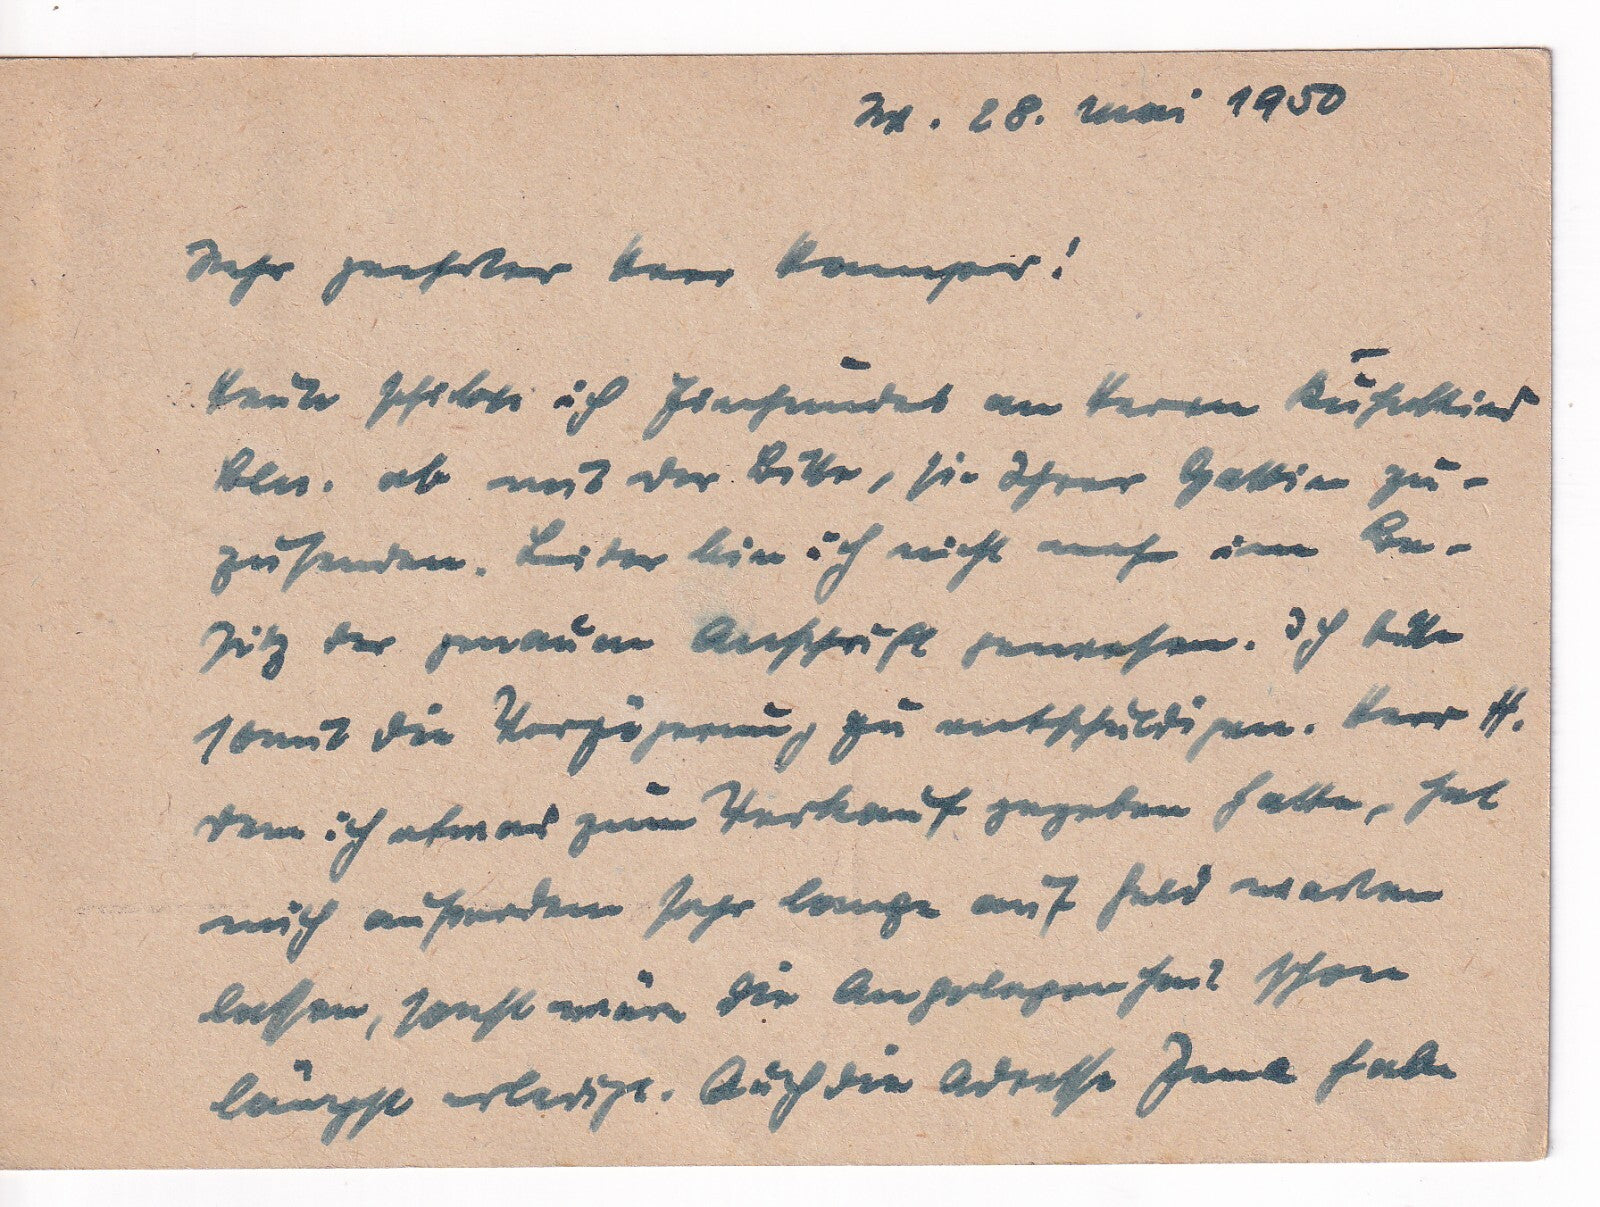 28. Mai 1950
Sehr geehrter Herr Kamper!
Heute schickte ich an Herrn
Bln. ab mit der Bitte, sie Ihrer Gattin zu-
zusenden. Leider bin ich nicht mehr im Be-
sitz der genauen Anschrift gewesen. Ich bitte
somit die Verzögerung zu entschuldigen. Herr H.
dem ich etwas zum Verkauf gegeben hatte, hat
mich außerdem sehr lange auf Geld warten
lassen, sonst wäre die Angelegenheit schon
längst erledigt. Auch die Adresse habe